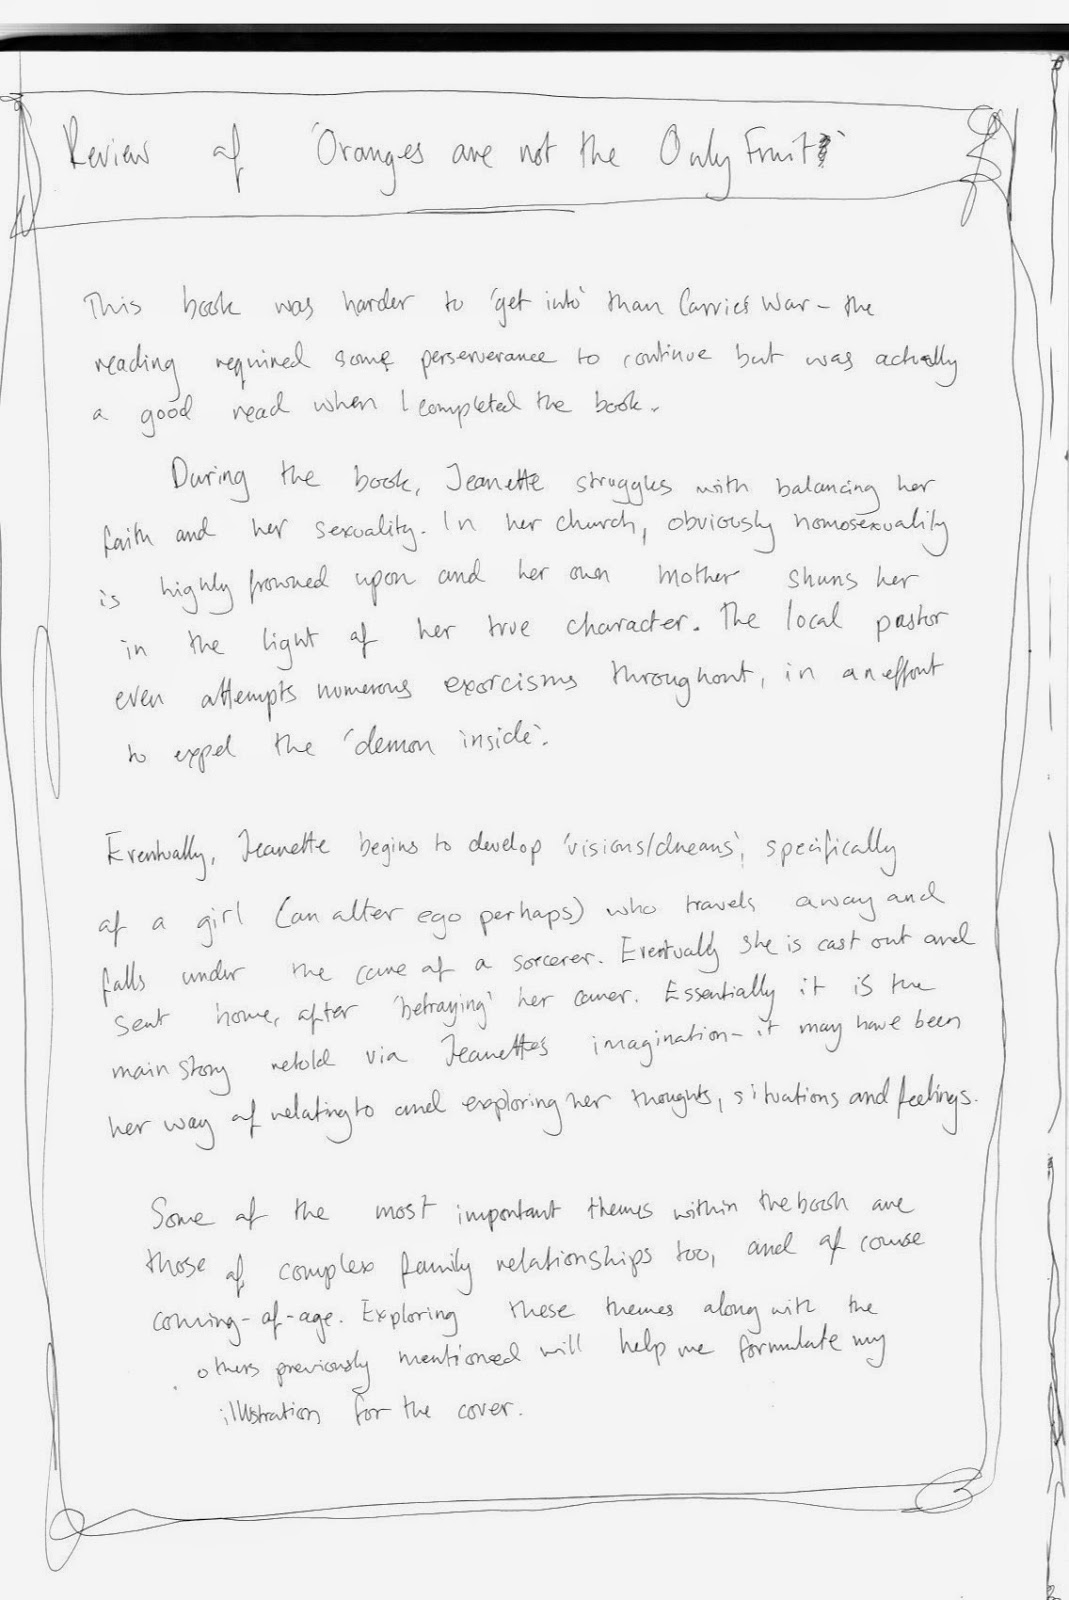 Review of 'Oranges are not the Only Fruit'
This book was harder to 'get into' than Carries War - the
reading required some perserverance to continue but was actually
a good read when I completed the book.
During the book, Jeanette struggles with balancing her
faith and her sexuality. In her church, obviously homosexuality
is highly frowned upon and her own mother shuns her
in the light of her true character. The local pastor
even attempts numerous exorcisms throughout, in an effort
to expel the 'demon inside'.
Eventually, Jeanette begins to develop 'visions/dreams', specifically
of a girl (an alter ego perhaps) who travels away and
falls under the care of a sorcerer. Eventually she is cast out and
sent home, after 'betraying' her carer. Essentially it is the
main story retold via Jeanette's imagination - it may have been
her way of relating to and exploring her thoughts, situations and feelings.
Some of the most important themes within the book are
those of complex family relationships too, and of course
coming-of-age. Exploring these themes along with the
others previously mentioned will help me formulate my
illustration for the cover.